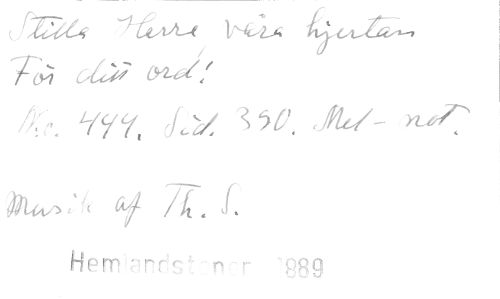 Stilla Herre, våra hjertan
För ditt ord!
No. 444. Sid. 390. Mel-not.
Musik af Th. S.
Hemlandstoner 1889